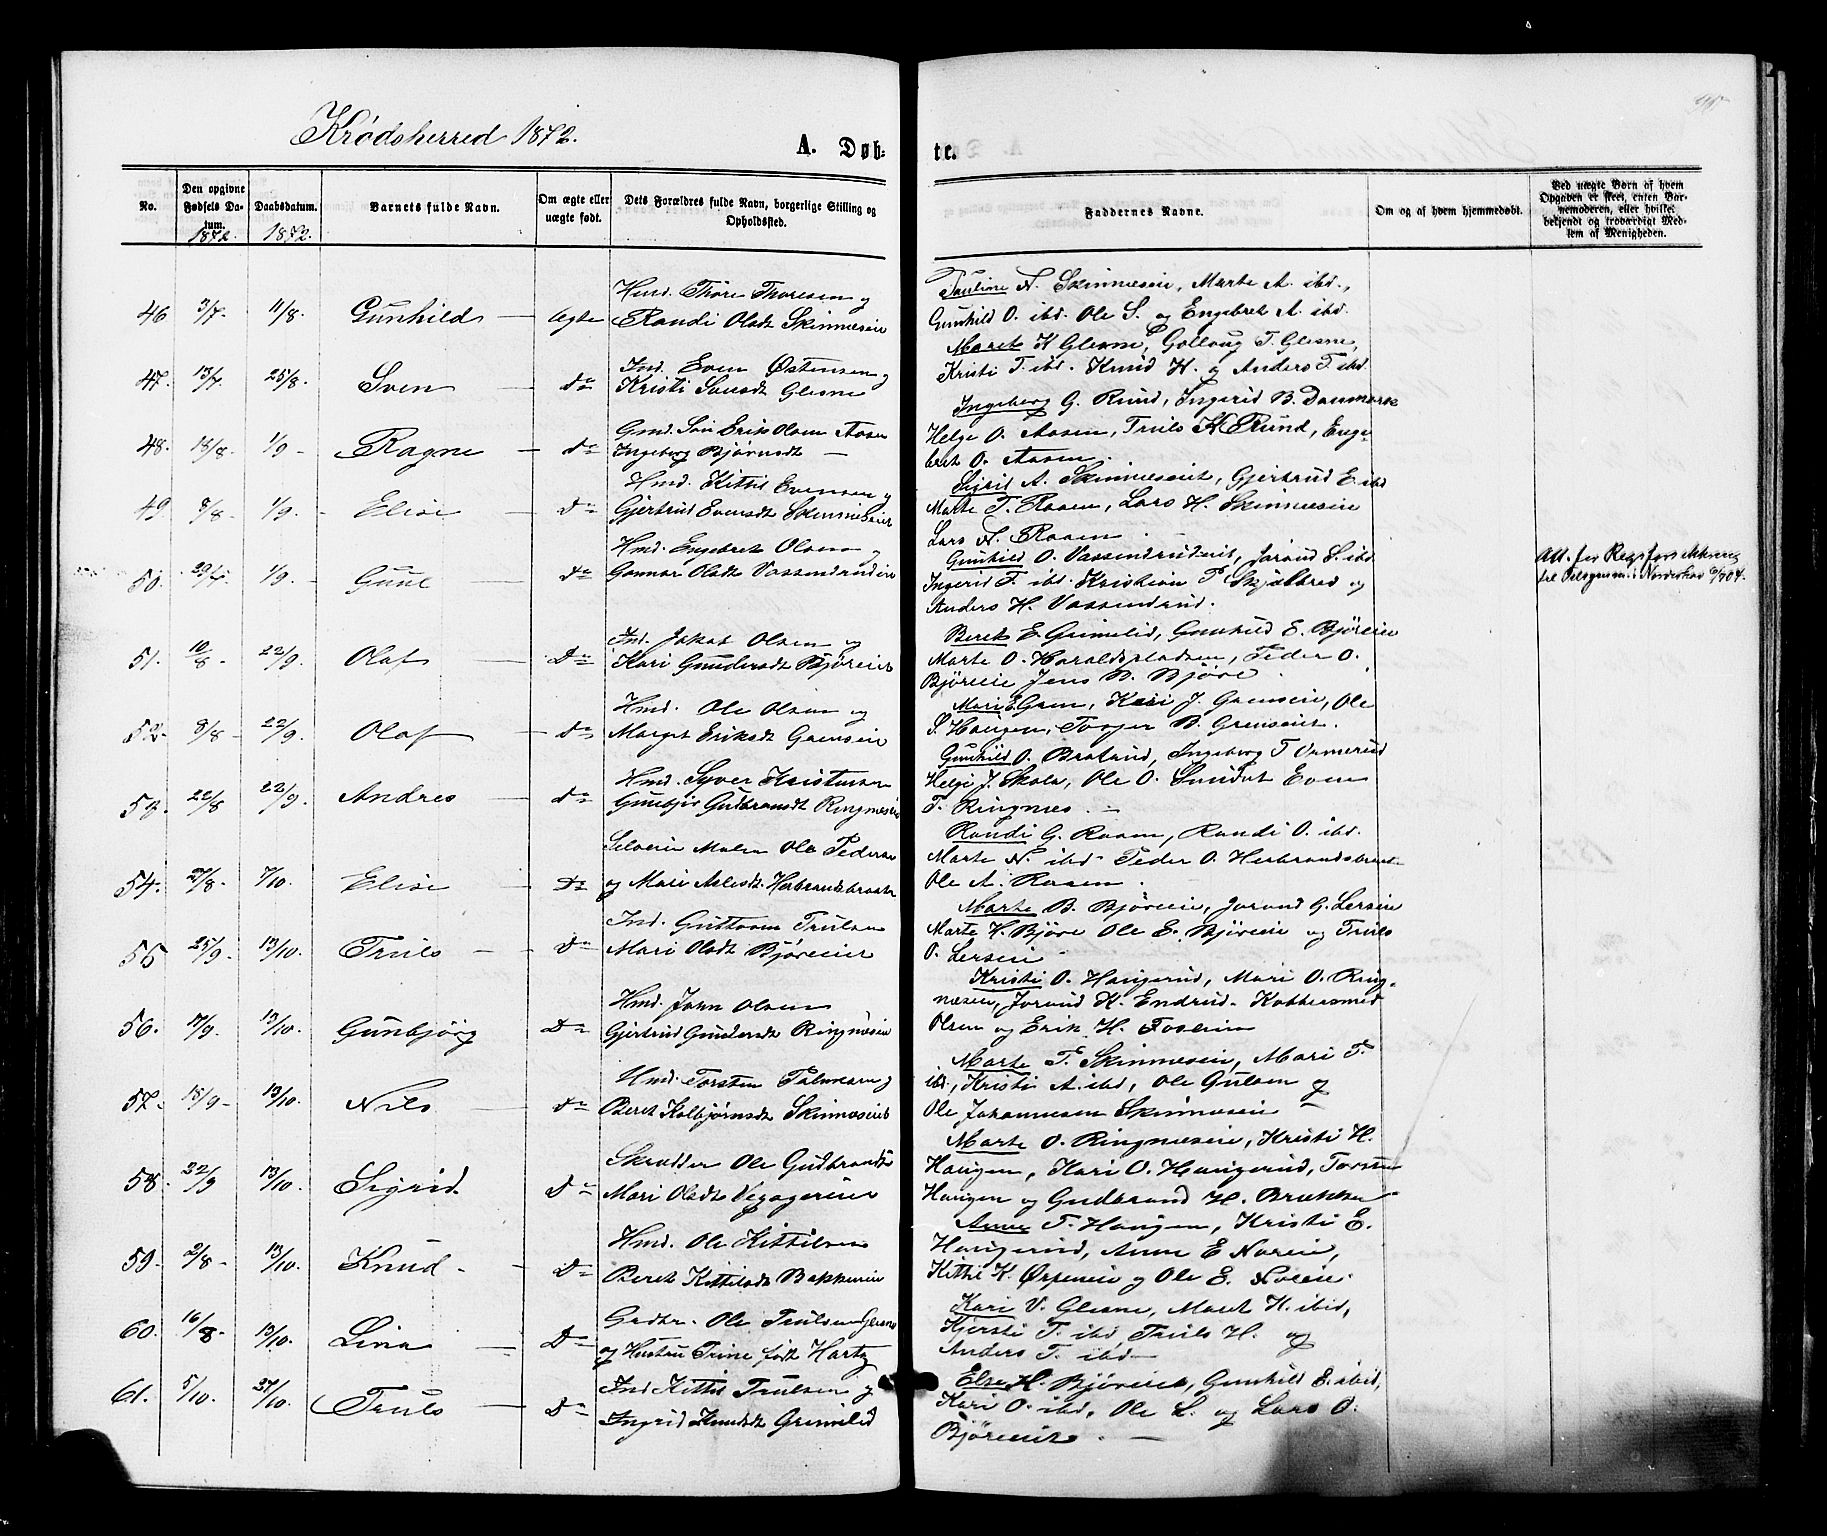 Krødsherred 1872.
A. Døb-
te.
No.
Den opgivne Fødsels Da-
tum.
1872.
Daabsdatum.
1872.
Barnets fulde Navn.
Om ægte eller
uægte født.
Dets Forældres fulde Navn, borgerlige Stilling og
Opholdssted.
Faddernes Navne.
Om og af hvem hjemmedøbt.
Ved uægte Børn af hvem
Opgaven er skeet, enten Bar-
nemoderen, eller hvilke
bekjendt og troværdigt Med-
lem af Menigheden.
46 3/7- 11/8. Gunhild - Ægte
Hmd. Thore Thoresen og
Randi Olsdt Skinneseie
Pauline N. Skinneseie, Marte A. ibd.,
Gunhild O. ibd. Ole S. og Engebret A. ibd.
47. 13/7 25/8. Sven - do
Ind. Even Østensen og
Kristi Svensdt Glesne
Maret K Glesne, Gollaug T. Glesne,
Kristi T. ibd. Knud H. og Anders T. ibd.
48. 18/8. 1/9 - Ragne - do
Gmd. Søn Erik Olsen Aasen
Ingeborg Bjørnsdt -
Ingeborg G. Rund, Ingerid B. Danmark
Helge O. Aasen, Truls H. Rund, Enge-
bret O. Aasen.
49. 8/8- 1/9. - Elise - do
Hmd. Kittil Evensen og
Gjertrud Evensdt Skinneseiet
Sigrid A. Skinneseiet, Gjertrud E. ibd
Marte T. Raaen, Lars H. Skinneseie
Lars N. Raaen.
50. 29/7- 1/9. - Guul - do
Hmd. Engebret Olsen og
Gunnor Olsdt Vassendrudeie
Gunhild O. Vassendrudeie, Jørand S. ibd
Ingerid F. ibd. Kristian P. Skjaldred og
Anders H. Vassendrud.
Att. for Rigsforsikring
51. 10/8- 22/9. Olaf - do
Ind. Jakob Olsen og
Kari Gundersdt Bjøreeie
Beret E. Grimelid, Gunhild E. Bjøreeie
Marte O. Haraldspladsen, Peder O.
Bjøreeie Jens N. Bjøre.
52. 8/8- 22/9. Olaf - do
Hmd. Ole Olsen og
Marget Eriksdt Grenseie
Mari E. Gren, Kari J. Grenseie, Ole
S. Haugen, Torger B. Grenseiet.
53. 22/8 22/9. Andres - do
Hmd. Syver Kristensen
Gunbjør Gudbransdt Ringneseie
Gunhild O. Bratrud, Ingeborg T Ormerud
Helge J. Skola, Ole O. Sundet Even
T. Ringnes.
54. 27/8- 7/10. Elise - do
Seleveier Maler Ole Pedersen
og Mari Aslesdt. Herbrandsbraaten
Randi G. Raaen, Randi O. ibd.
Marte N. ibd. Peder O. Herbrandsbraat-
Ole A. Raaen.
55 25/9- 13/10. Truls - do
Ind. Guttorm Trulsen
Mari Olsdt Bjøreeiet
Marte B. Bjøreeie, Jørand G. Lerseie
Marte H. Bjøre Ole E. Bjøreeie og Truls
O. Lerseie.
56. 17/9. 13/10. Gunbjørg do
Hmd. John Olsen
Gjertrud Gundersdt Ringneseie
Kristi O. Haugerud, Mari O. Ring-
nesen, Jørand K. Endrud. Kobbersmed
Olsen og Erik H. Foseeie
57. 15/9- 13/10. Nils - do
Hmd. Torsten Palmesen og
Beret Kolbjørnsdt Skinneseiet
Marte P. Skinneseie, Mari T.
ibd, Kristi A. ibd, Ole Gulsen og
Ole Johannesen Skinneseie
58. 22/9 13/10. Sigrid. do
Skrædder Ole Gudbrandse
Mari Olsdt Vegagereie
Marte O. Ringneseie, Kristi H.
Haugen, Kari O. Haugerud, Torsten
Haugen og Gudbrand H. Brækka
59. 2/8- 13/10. Knud - do
Hmd. Ole Kittilsen
Beret Kittilsdt Bakkeneie
Anne T. Haugen, Kristi E.
Haugerud, Anne E Noreie,
Kittil K. Ørpeneie og Ole E. Noreie.
60. 16/8- 13/10. Lina - do
Gaardbr. Ole Trulsen Glesne
og Hustru Trine født Hartz
Kari V. Glesne, Maret H. ibid,
Kjersti T. ibd Truls H. og
Anders T. ibd
61. 5/10. 27/10. Truls - do
Ind Kittil Trulsen og
Ingrid Knudsdt Grimelid
Else H. Bjøreeie, Gunhild E. ibid,
Kari O. ibd, Ole L. og Lars O.
Bjøreeie.